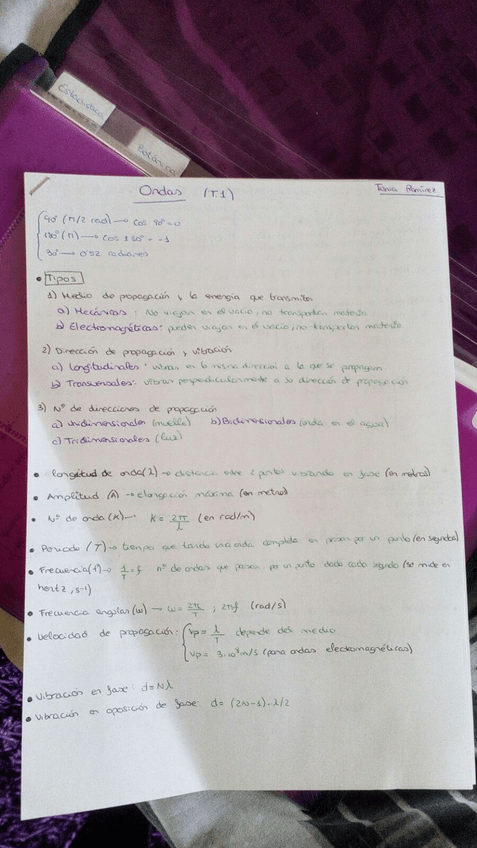 Estadística
Botánica
Ondas (T1)
Tania Ramírez
90º (π/2 rad) → cos 90º = 0
180º (π) → cos 180º = -1
30º → 0'52 radianes
• Tipos
1) Medio de propagación y la energía que transmiten
a) Mecánicas: No viajan en el vacío, no transportan materia
b) Electromagnéticas: pueden viajar en el vacío, no transportan materia
2) Dirección de propagación y vibración
a) Longitudinales: vibran en la misma dirección a la que se propagan
b) Transversales: vibran perpendicularmente a su dirección de propagación
3) Nº de direcciones de propagación
a) Unidimensionales (muelle) b) Bidimensionales (onda en el agua)
c) Tridimensionales (luz)
• Longitud de onda (λ) → distancia entre 2 puntos vibrando en fase (en metros)
• Amplitud (A) → elongación máxima (en metros)
• Nº de onda (K) → K = 2π/λ (en rad/m)
• Periodo (T) → tiempo que tarda una onda completa en pasar por un punto (en segundos)
• Frecuencia (f) → 1/T = f nº de ondas que pasan por un punto dado cada segundo (se mide en
hertz, s-1)
• Frecuencia angular (ω) → ω = 2π/T ; 2πf (rad/s)
• Velocidad de propagación: Vp = λ/T depende del medio
Vp = 3·10⁸ m/s (para ondas electromagnéticas)
• Vibración en fase: d = Nλ
• Vibración en oposición de fase: d = (2N-1)·λ/2